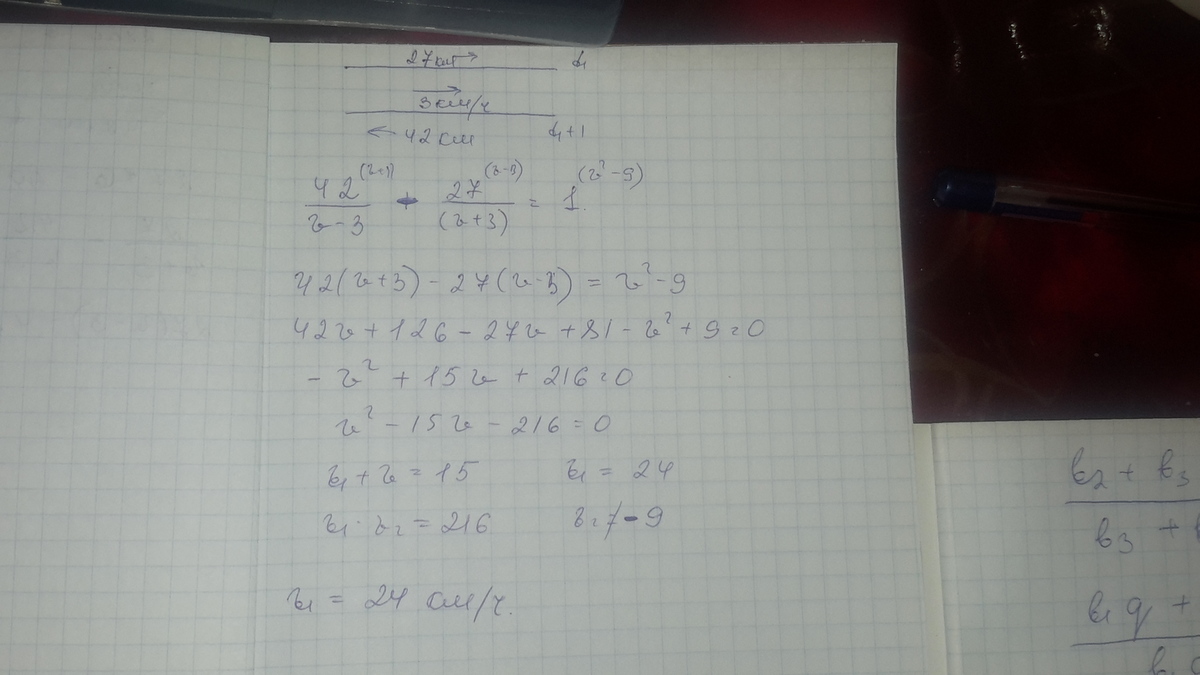 27км → t₁
3 км/ч
← 42 км t₁+1
42^(v+3)/(v-3) - 27^(v-3)/(v+3) = 1^(v²-9)
42(v+3) - 27(v-3) = v²-9
42v + 126 - 27v + 81 - v² + 9 = 0
- v² + 15v + 216 = 0
v² - 15v - 216 = 0
v₁ + v = 15 v₁ = 24
v₁ · v₂ = 216 v₂ ≠ -9
v₁ = 24 км/ч.
b₂ + b₃
b₃ +
b₁q +